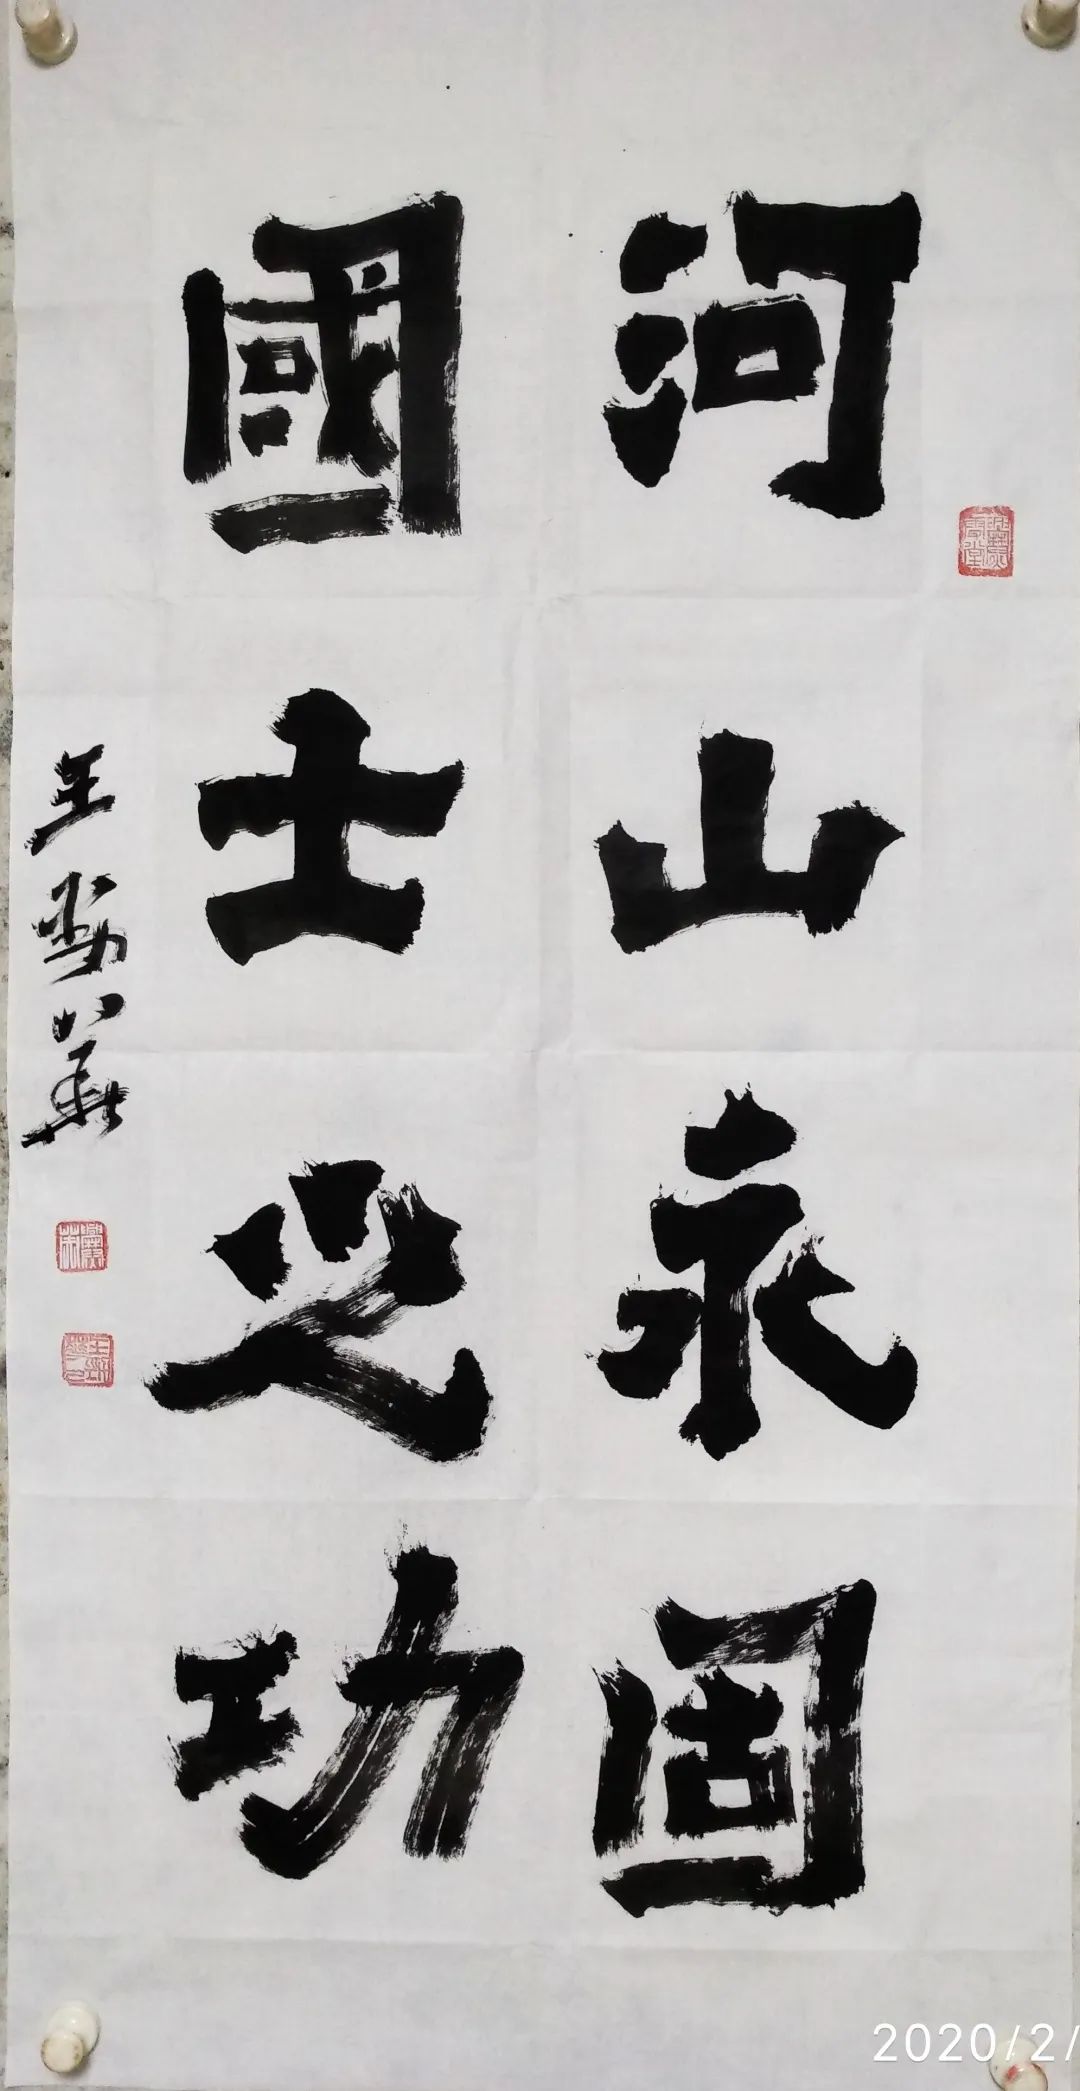 河山永固
國士之功
2020/2/